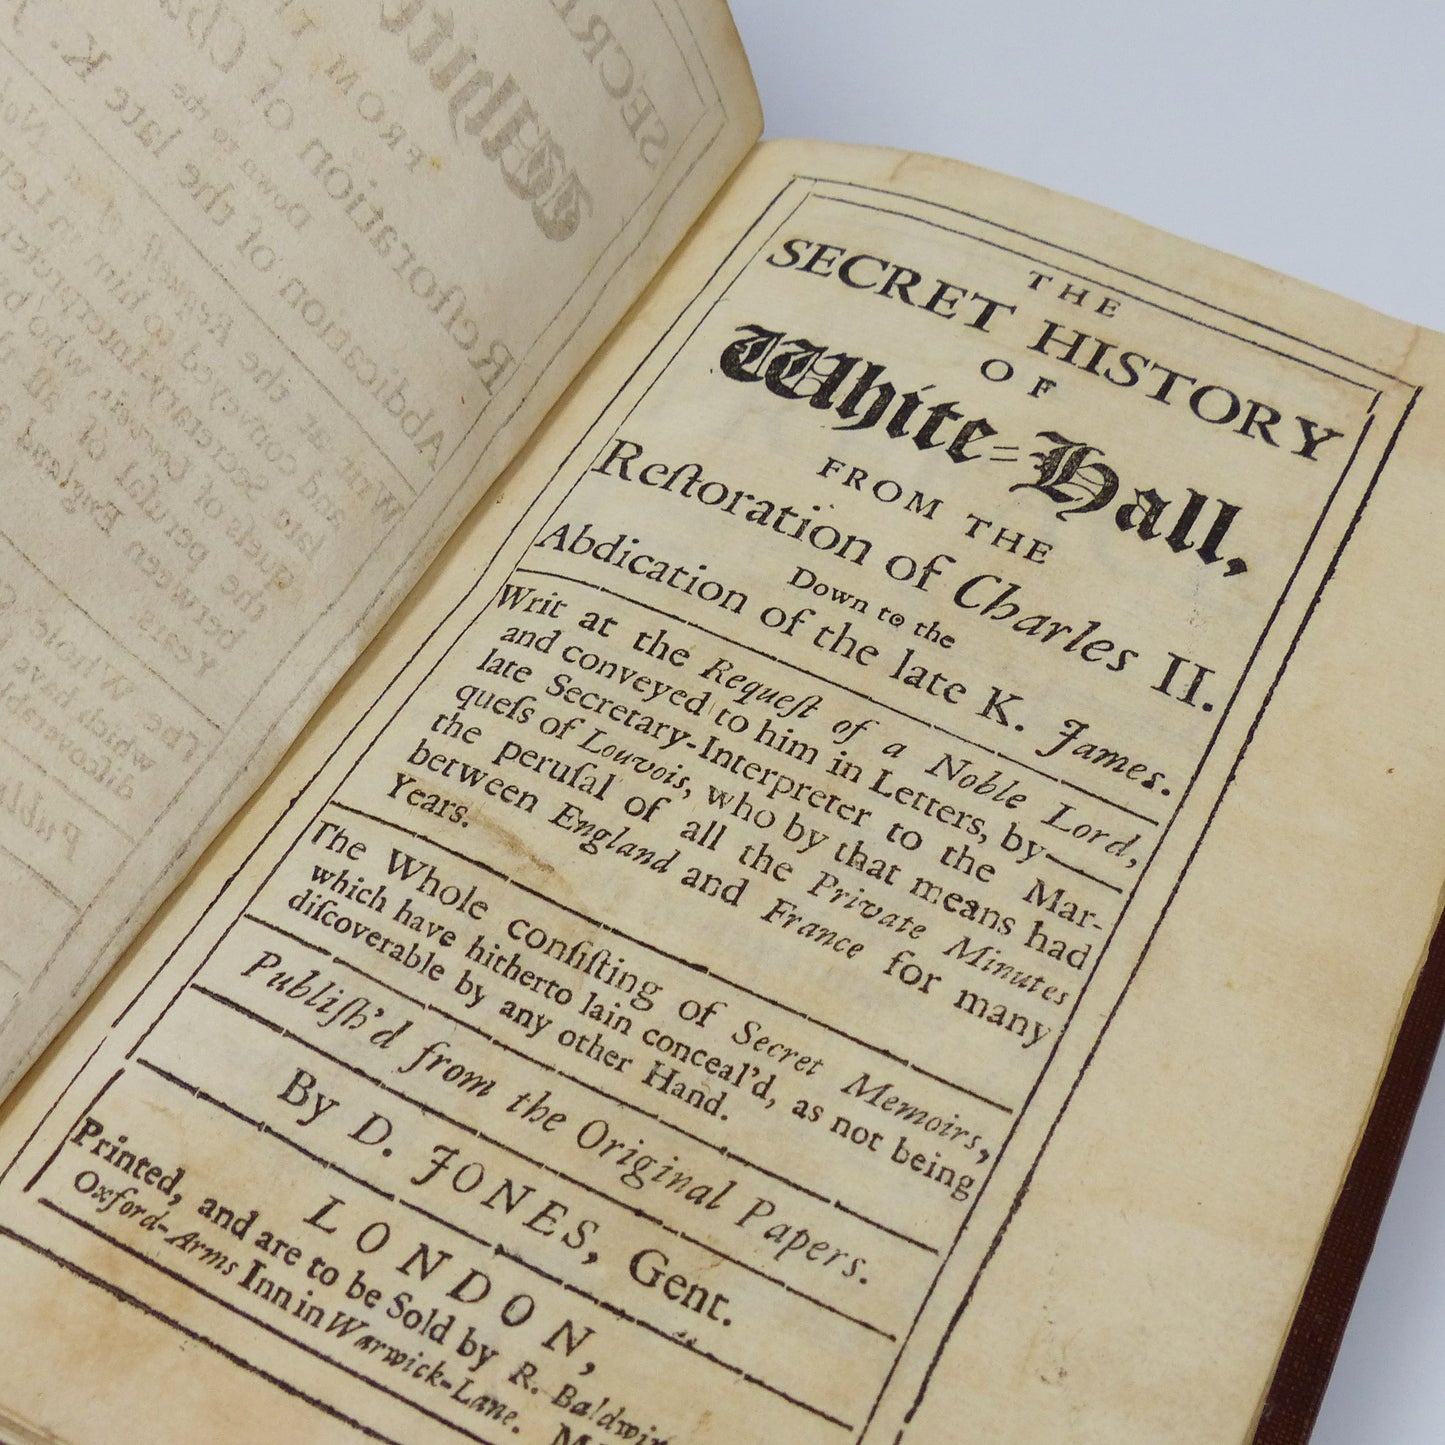 THE
SECRET HISTORY
OF
White=Hall,
FROM THE
Reſtoration of Charles II.
Down to the
Abdication of the late K. James.
Writ at the Requeſt of a Noble Lord,
and conveyed to him in Letters, by—
late Secretary-Interpreter to the Mar-
queſs of Louvois, who by that means had
the peruſal of all the Private Minutes
between England and France for many
Years.
The Whole conſiſting of Secret Memoirs,
which have hitherto lain conceal'd, as not being
diſcoverable by any other Hand.
Publiſh'd from the Original Papers.
By D. JONES, Gent.
LONDON,
Printed, and are to be Sold by R. Baldwin
Oxford-Arms Inn in Warwick-Lane.